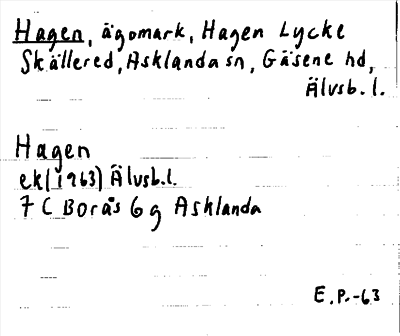 Hagen, ägomark, Hagen Lycke
Skällered, Asklanda sn, Gäsene hd,
Älvsb. l.
Hagen
ek (1963) Älvsb.l.
7 C Borås 6 g Asklanda
E.P.-63